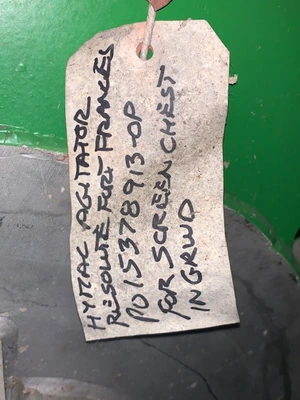 HYTRAC AGITATOR
RESOLUTE FORT FRANCES
PO 15378913-OP
FOR SCREEN CHEST
IN GRWD